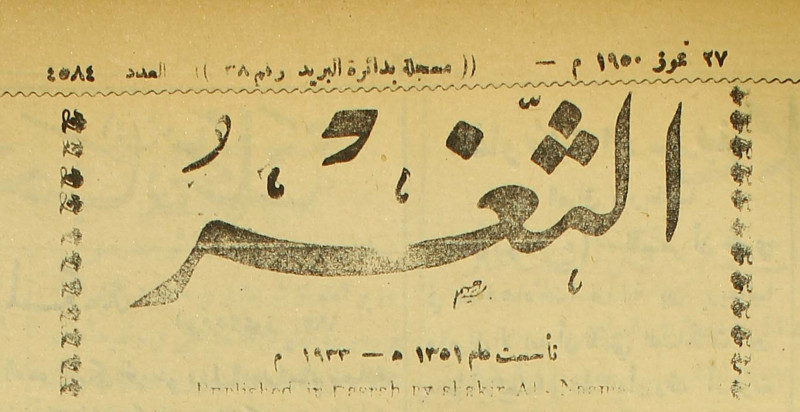 ٢٧ تموز ١٩٥٠ م — (( مسجلة بدائرة البريد رقم ٣٨ )) العدد ٤٥٨٤
الثغر
تأسست عام ١٣٥١ ه — ١٩٣٣ م
Published in Basrah by Shakir Al-Naama